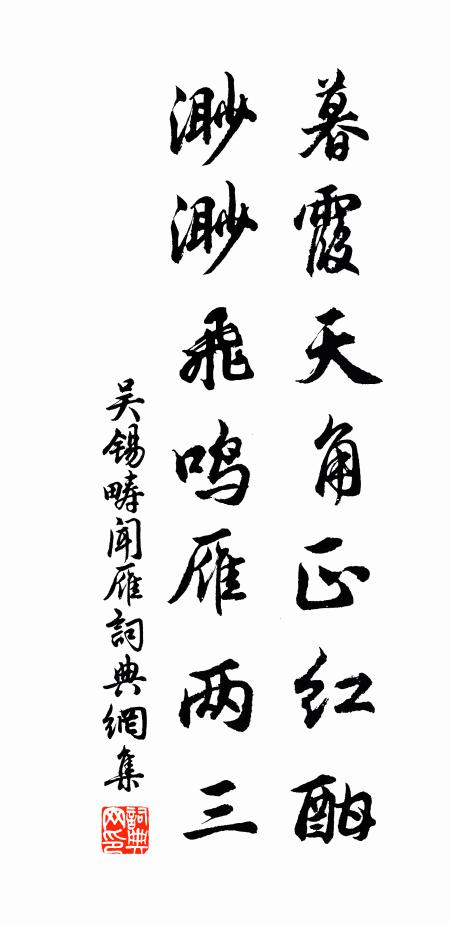 暮霞天角正红酣
渺渺飛鸣雁两三
吴锡畴闻雁詞典網集
詞典网印